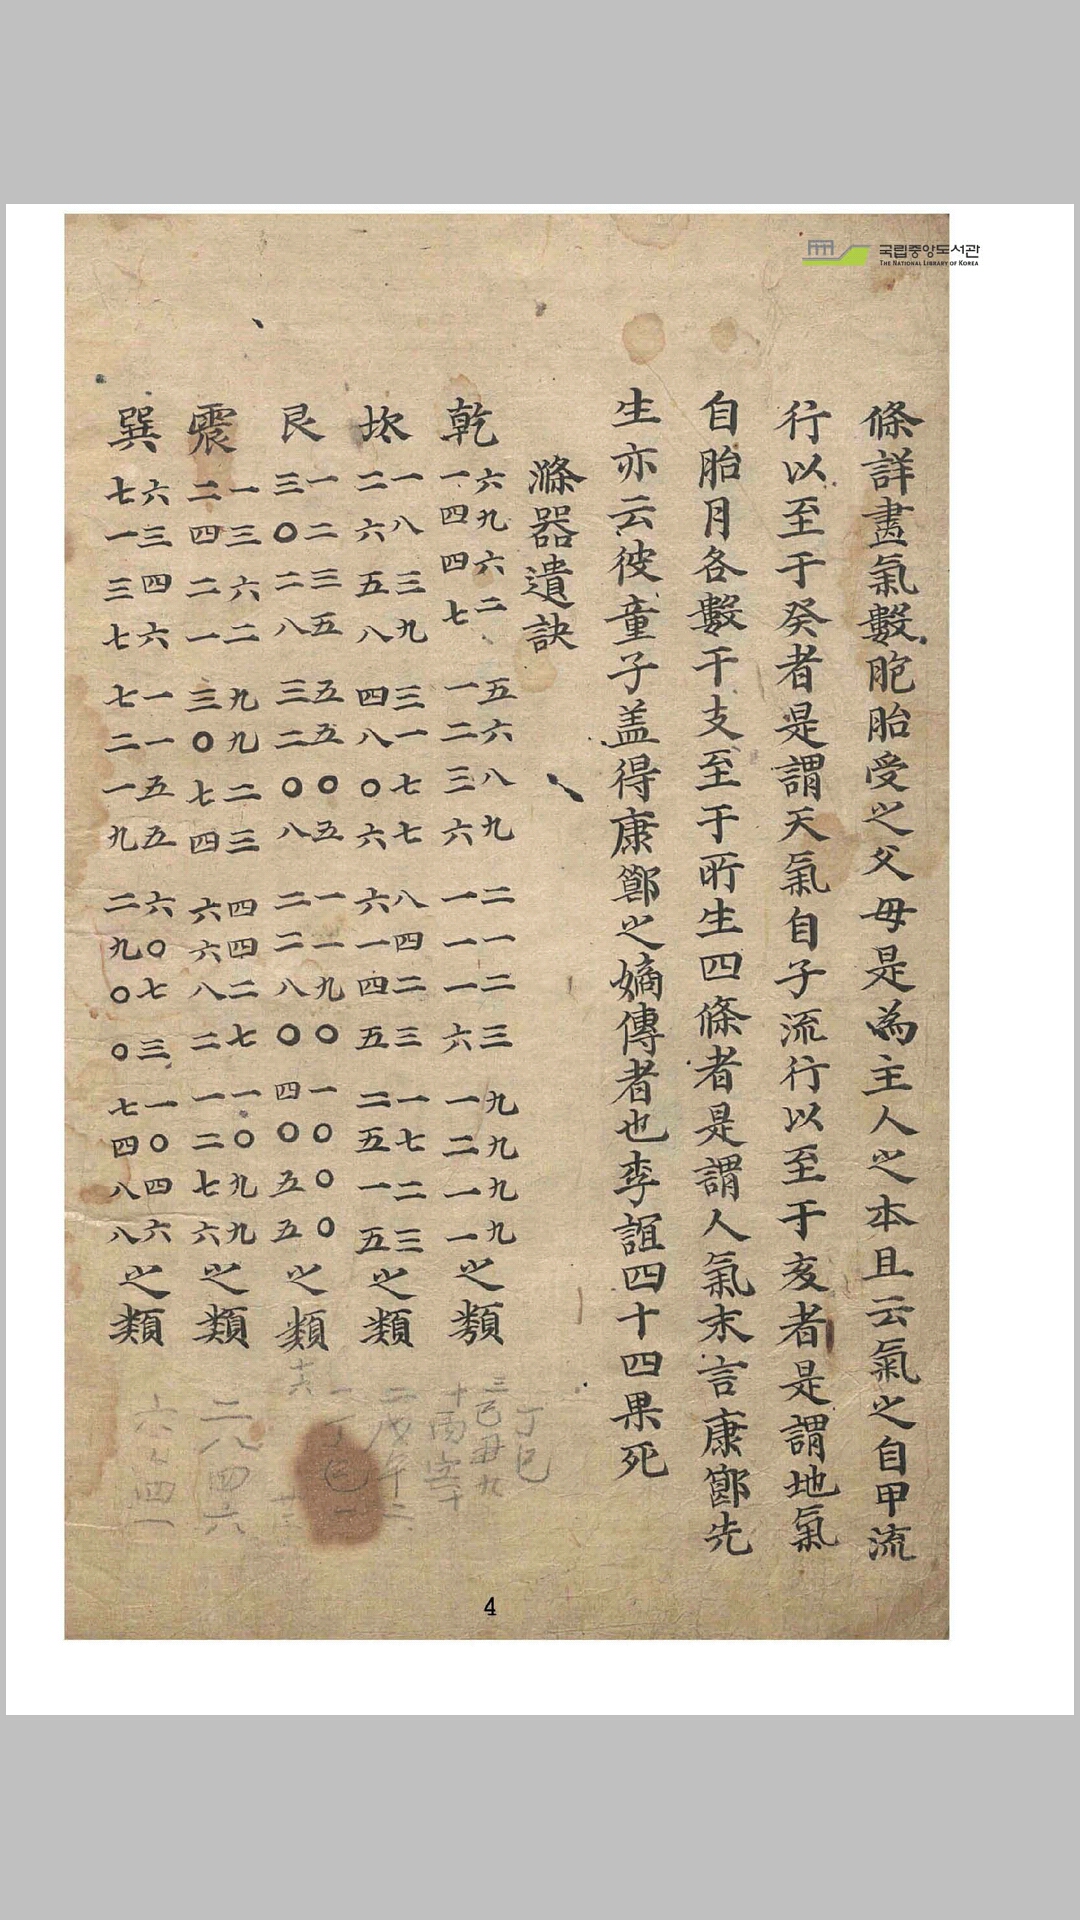 국립중앙도서관
THE NATIONAL LIBRARY OF KOREA
條詳畫氣數胞胎受之父母是為主人之本且云氣之自甲流
行以至于癸者是謂天氣自子流行以至于亥者是謂地氣
自胎月各數干支至于所生四條者是謂人氣末言康節先
生亦云彼童子盖得康節之嫡傳者也李誼四十四果死
滌器遺訣
乾 六九六二 五六八九 二一二三 九九九九
一四四七 一二三六 一一一六 一二一一 之類
坎 一八三九 三一七七 八四二三 一七二三
二六五八 四八〇六 六一四五 二五一五 之類
艮 一二三五 五五〇五 一一九〇 一〇〇〇
三〇二八 三二〇八 二二八〇 四〇五五 之類
震 一三六二 九九二三 四四二七 一〇九九
二四二一 三〇七四 六六八二 一二七六 之類
巽 六三四六 一一五五 六〇七三 一〇四六
七一三七 七二一九 二九〇〇 七四八八 之類
丁巳
三己丑九
一丁巳一
二八四六
4